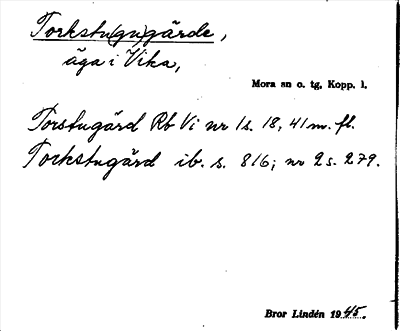 Torkstu(gu)gärde,
äga i Vika,
Mora sn o. tg, Kopp. l.
Torstugärd Rb Vi nr 1 s. 18, 41 m. fl.
Torkstugärd ib. s. 816; nr 2 s. 279.
Bror Lindén 1945.